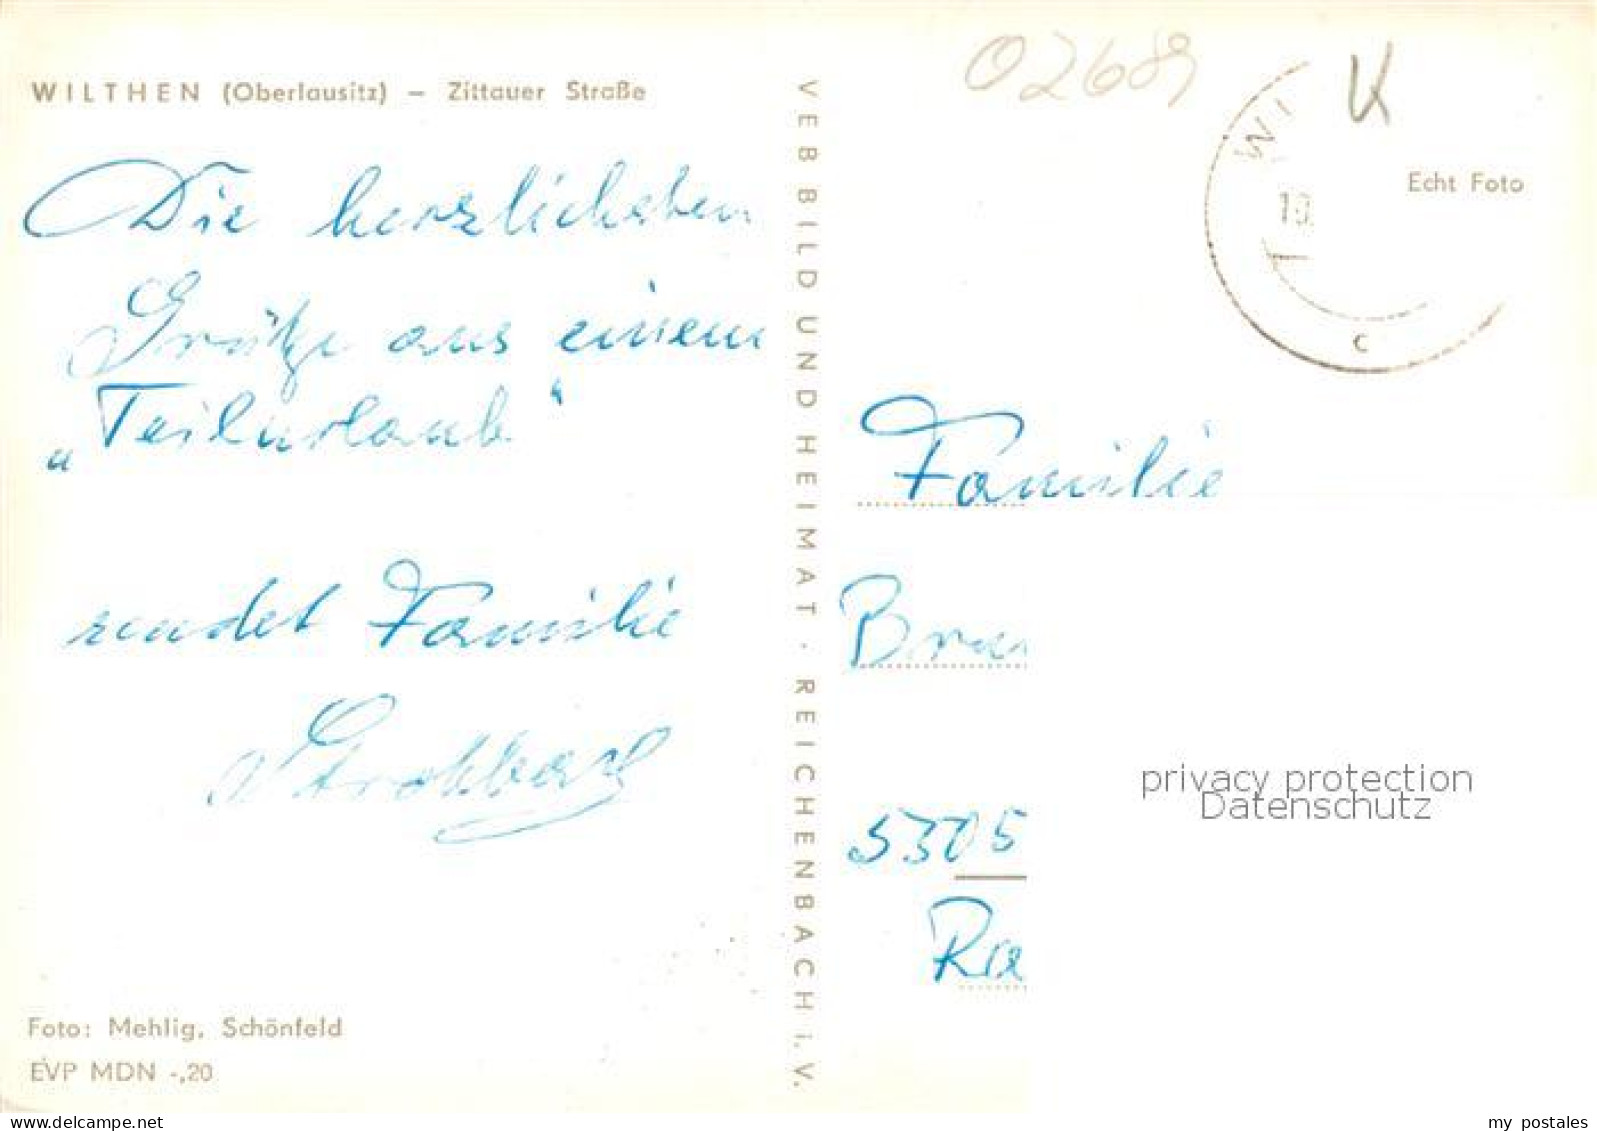 WILTHEN (Oberlausitz) – Zittauer Straße
Die herzlichsten
Grüße aus einem
„Teilurlaub"
sendet Familie
Strohbach
Foto: Mehlig, Schönfeld
EVP MDN -,20
VEB BILD UND HEIMAT · REICHENBACH i. V.
02689
K
WI
10.
c
Echt Foto
Familie
5305
privacy protection
Datenschutz
my postales